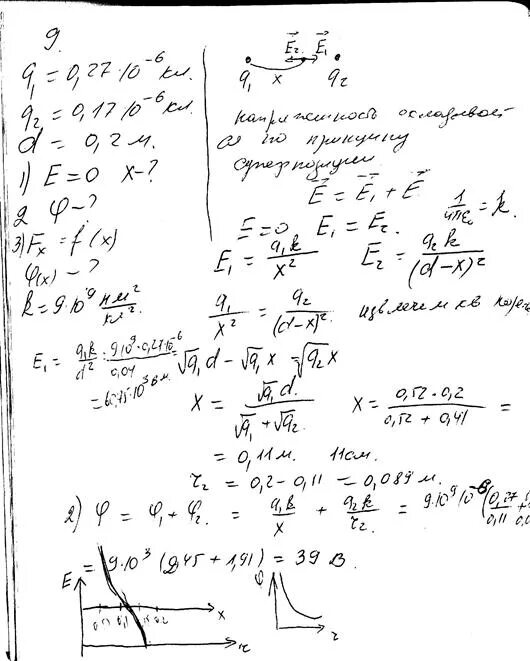 9.
q₁ = 0,27·10⁻⁶ кл.
q₂ = 0,17·10⁻⁶ кл.
d = 0,2 м.
1) E = 0 x-?
2 φ-?
3) Fₓ = f(x)
φ(x) -?
k = 9·10⁹ нм²/кл²
E₂ E₁
q₁ x q₂
напряженность
по принципу
суперпозиции
E = E₁ + E
E = 0 E₁ = E₂. 1/4πε₀ = k.
E₁ = q₁k/x² E₂ = q₂k/(d-x)²
q₁/x² = q₂/(d-x)². извлечем кв
E₁ = q₁k/d² = 9·10⁹·0,27·10⁻⁶/0,04
√q₁ d - √q₁ x = √q₂ x
x = √q₁ d/(√q₁ + √q₂) x = 0,52·0,2/(0,52 + 0,41) =
= 0,11 м. 11 см.
r₂ = 0,2 - 0,11 = 0,089 м.
2) φ = φ₁ + φ₂. = q₁k/x + q₂k/r₂. = 9·10⁹·10⁻⁶(0,27/0,11
= 9·10³ (2,45 + 1,91) = 39 В.
E x r
φ r